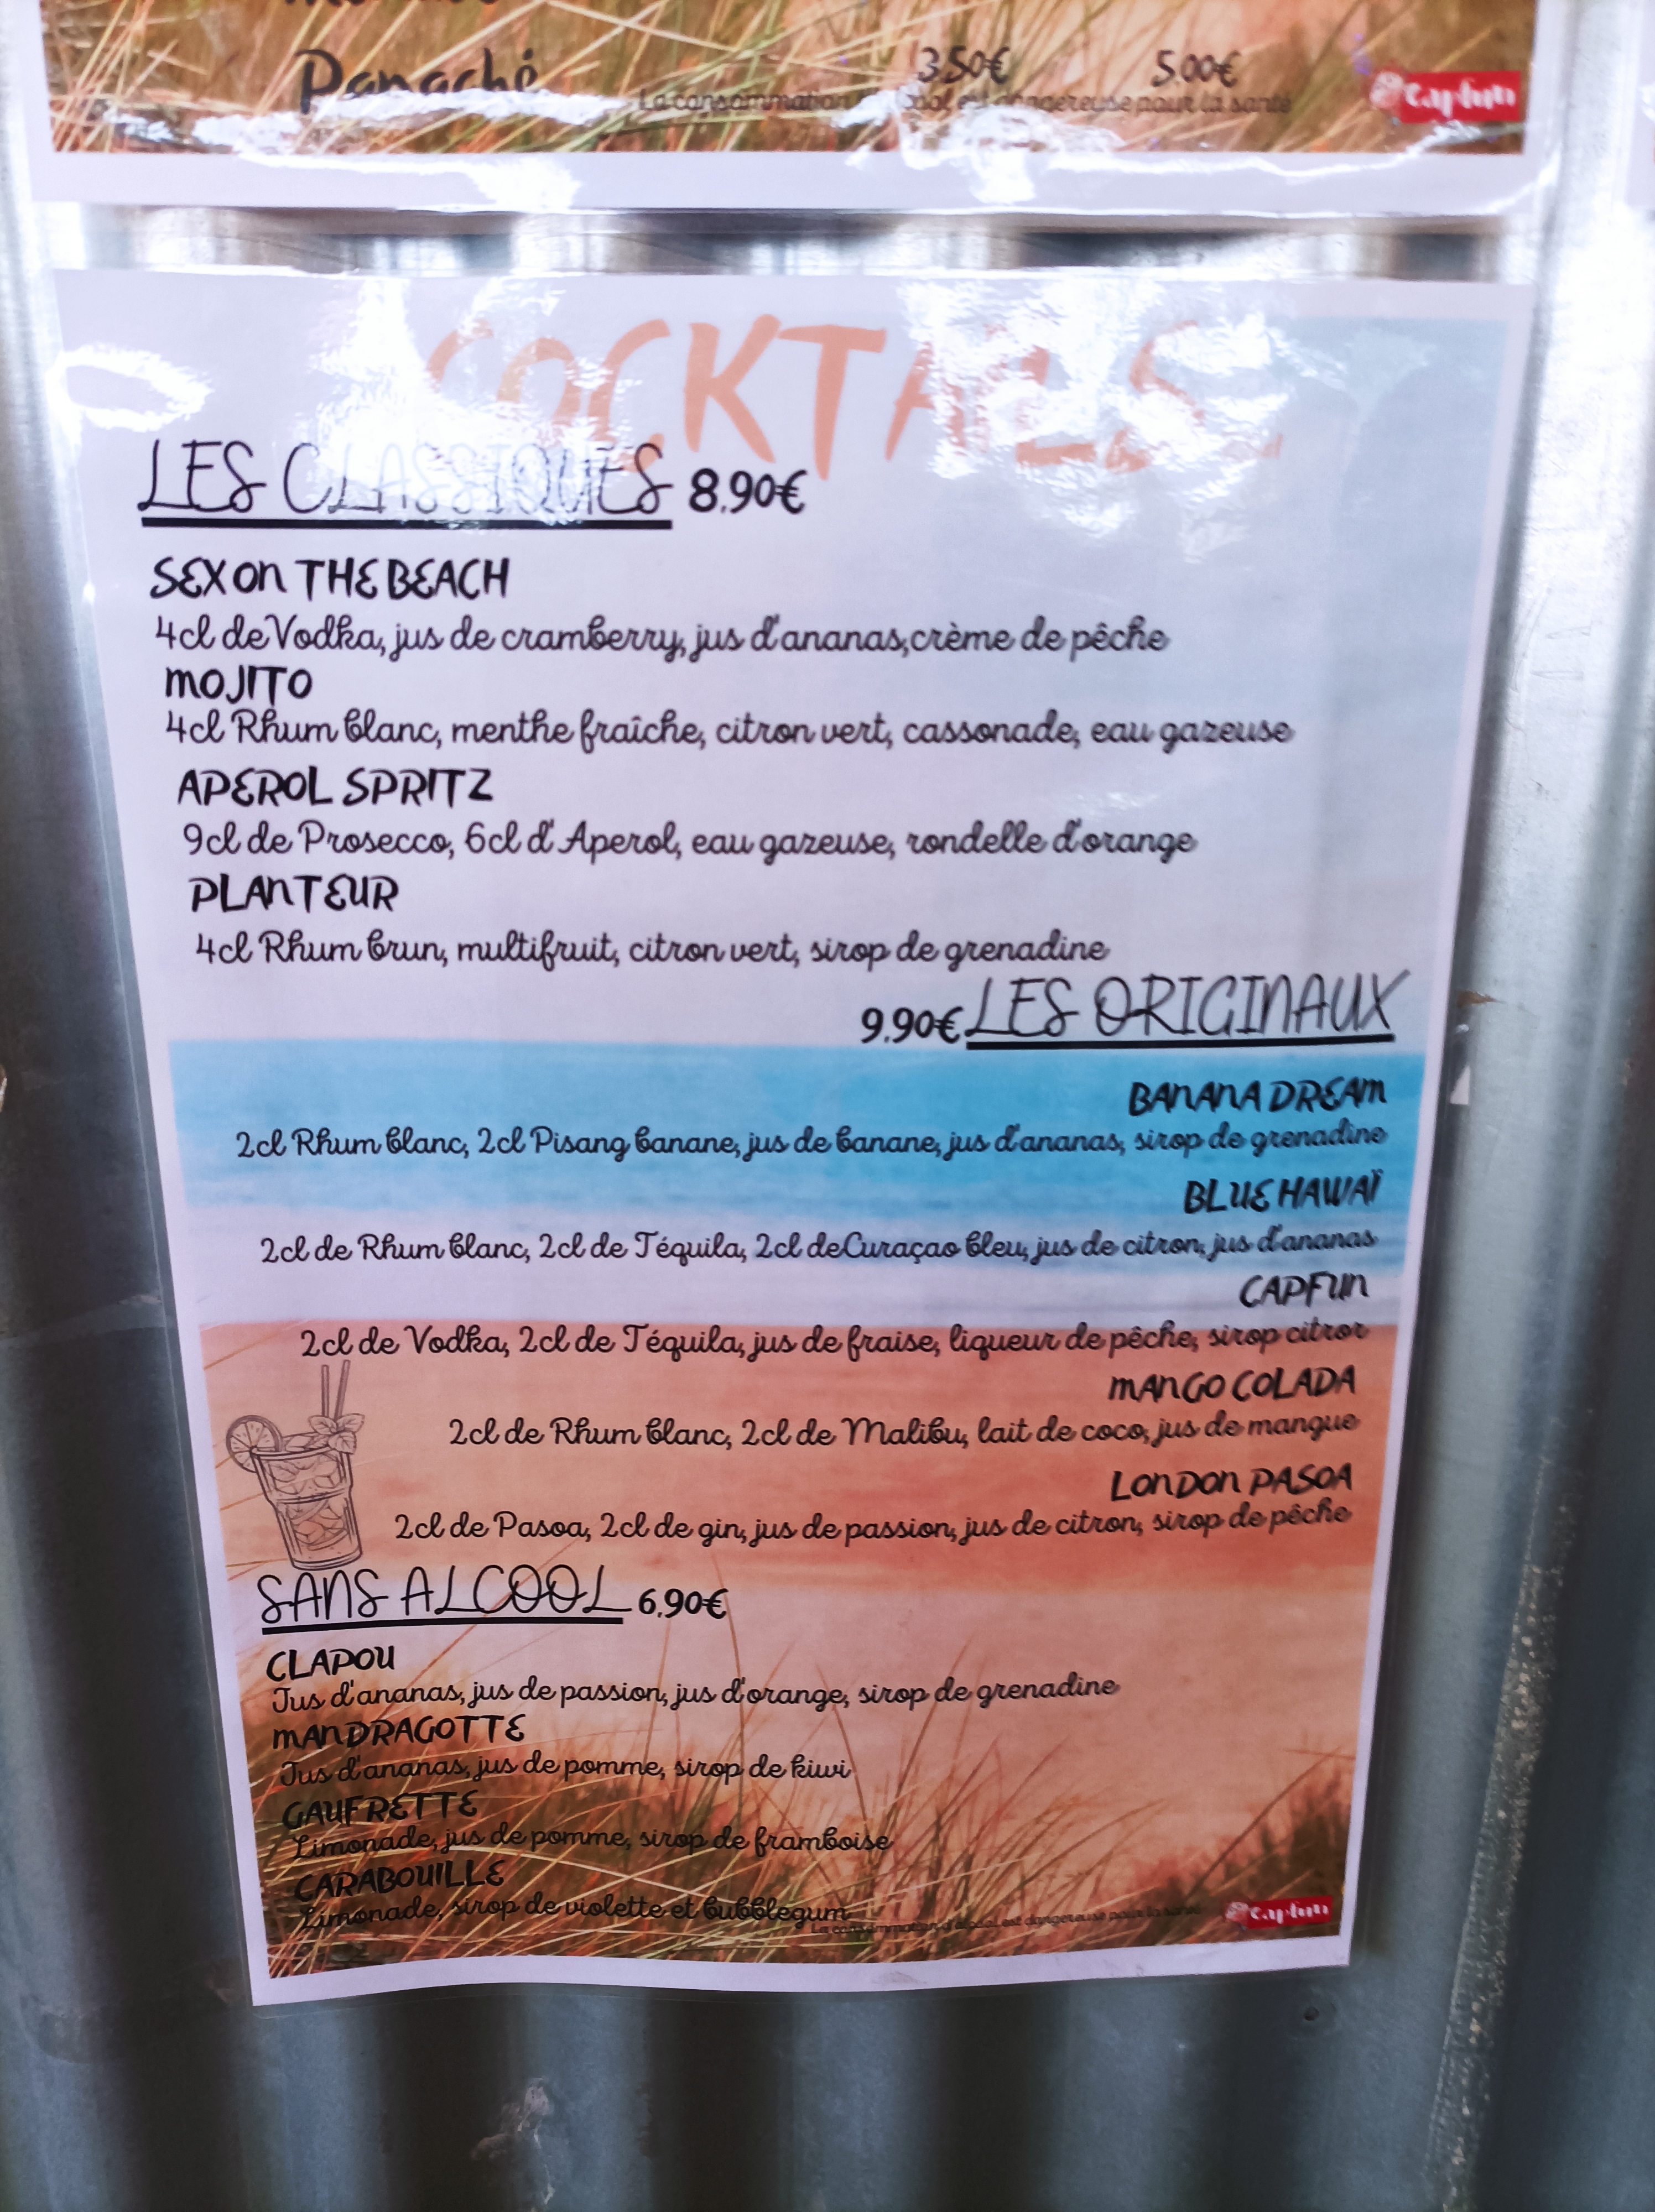 Panaché 3.50€ 5.00€
La consommation d'alcool est dangereuse pour la santé
capfun
COCKTAILS
LES CLASSIQUES 8.90€
SEX On THE BEACH
4cl de Vodka, jus de cramberry, jus d'ananas,crème de pêche
MOJITO
4cl Rhum blanc, menthe fraîche, citron vert, cassonade, eau gazeuse
APEROL SPRITZ
9cl de Prosecco, 6cl d'Aperol, eau gazeuse, rondelle d'orange
PLANTEUR
4cl Rhum brun, multifruit, citron vert, sirop de grenadine
9.90€ LES ORIGINAUX
BANANA DREAM
2cl Rhum blanc, 2cl Pisang banane, jus de banane, jus d'ananas, sirop de grenadine
BLUE HAWAÏ
2cl de Rhum blanc, 2cl de Téquila, 2cl de Curaçao bleu, jus de citron, jus d'ananas
CAPFUN
2cl de Vodka, 2cl de Téquila, jus de fraise, liqueur de pêche, sirop citron
MANGO COLADA
2cl de Rhum blanc, 2cl de Malibu, lait de coco, jus de mangue
LONDON PASOA
2cl de Pasoa, 2cl de gin, jus de passion, jus de citron, sirop de pêche
SANS ALCOOL 6.90€
CLAPOU
Jus d'ananas, jus de passion, jus d'orange, sirop de grenadine
MANDRAGOTTE
Jus d'ananas, jus de pomme, sirop de kiwi
GAUFRETTE
Limonade, jus de pomme, sirop de framboise
CARABOUILLE
Limonade, sirop de violette et bubblegum
La consommation d'alcool est dangereuse pour la santé
capfun